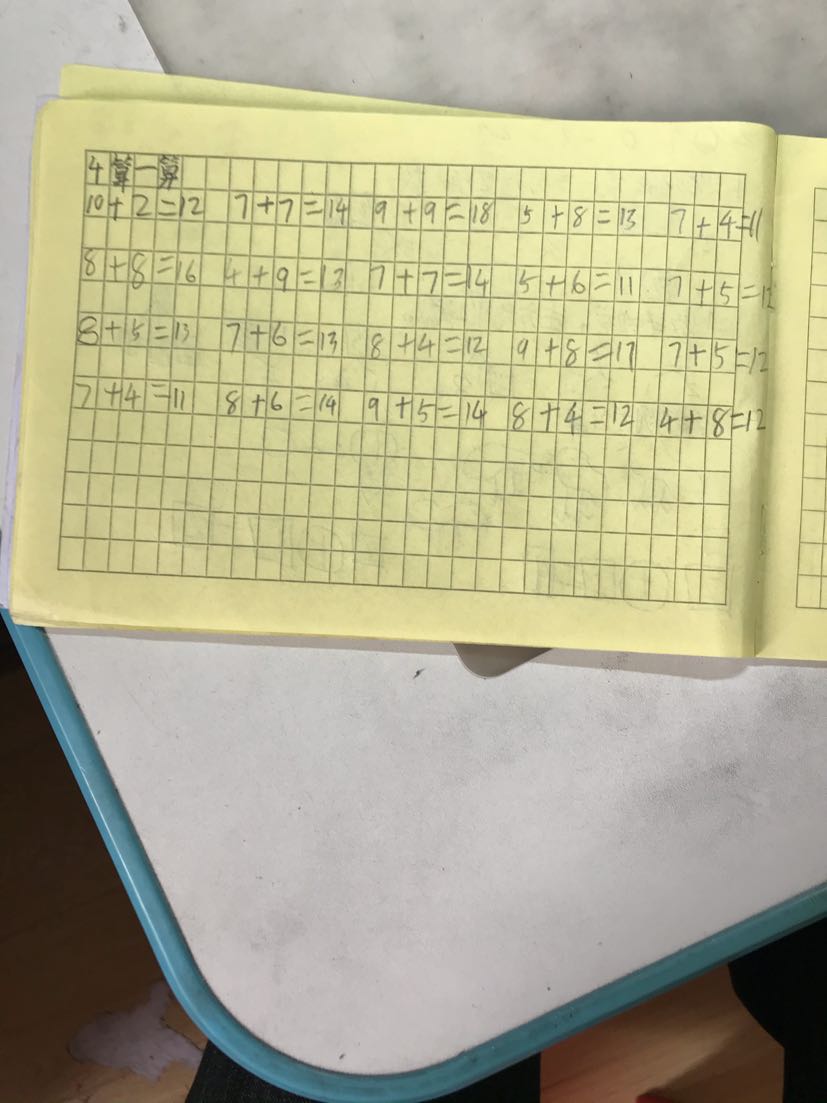 4 算一算
10+2=12 7+7=14 9+9=18 5+8=13 7+4=11
8+8=16 4+9=13 7+7=14 5+6=11 7+5=12
8+5=13 7+6=13 8+4=12 9+8=17 7+5=12
7+4=11 8+6=14 9+5=14 8+4=12 4+8=12